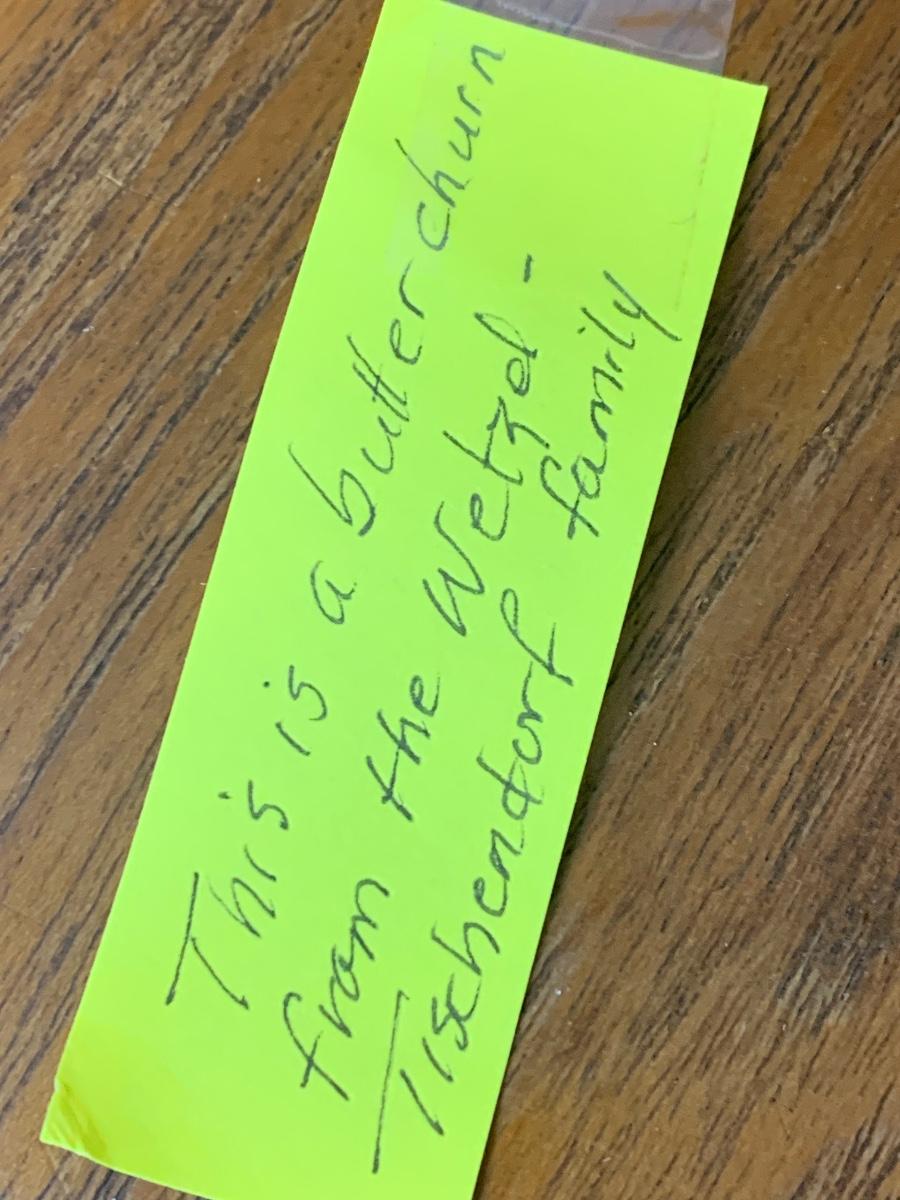 This is a butter churn
from the Wetzel -
Tischendorf family